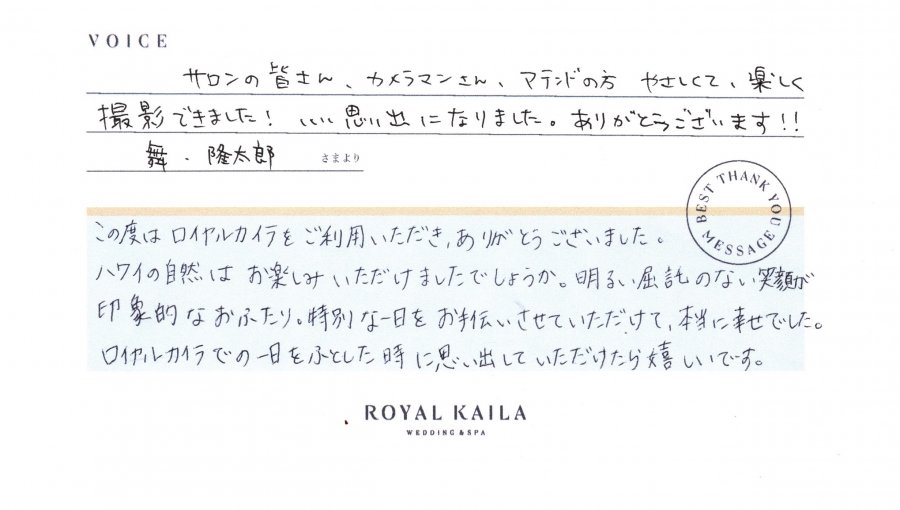 VOICE
サロンの皆さん、カメラマンさん、マテンドの方 やさしくて、楽しく
撮影できました! いい思い出になりました。ありがとうございます!!
舞・隆太郎 さまより
BEST THANK YOU MESSAGE
この度はロイヤルカイラをご利用いただき、ありがとうございました。
ハワイの自然はお楽しみいただけましたでしょうか。明るい屈託のない笑顔が
印象的なおふたり。特別な一日をお手伝いさせていただけて、本当に幸せでした。
ロイヤルカイラでの一日をふとした時に思い出していただけたら嬉しいです。
ROYAL KAILA
WEDDING & SPA